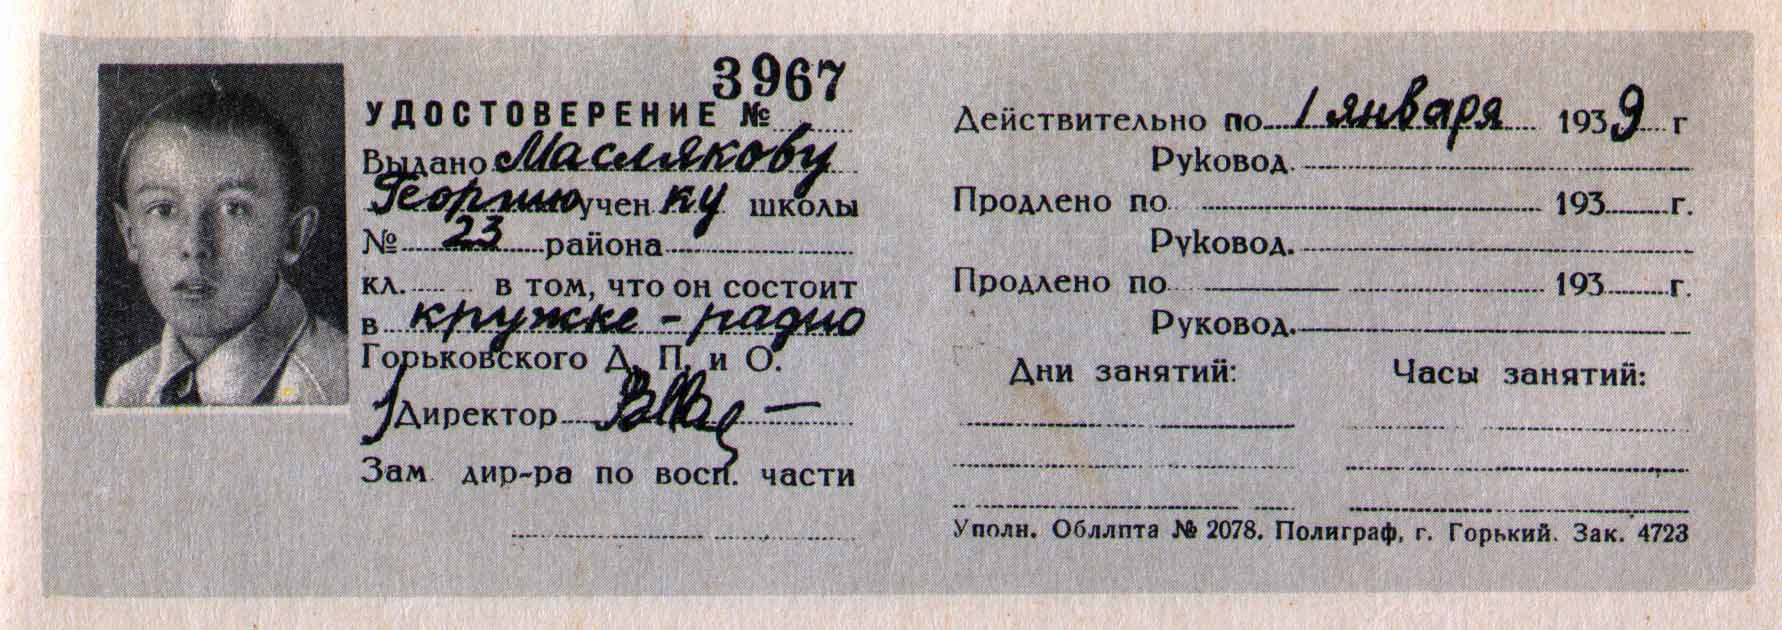 3967
УДОСТОВЕРЕНИЕ №
Выдано Маслякову
Георгию учен ку школы
№ 23 района
кл. в том, что он состоит
в кружке - радио
Горьковского Д. П. и О.
Директор
Зам. дир-ра по восп. части
Действительно по 1 января 1939 г
Руковод.
Продлено по 193 г.
Руковод.
Продлено по 193 г.
Руковод.
Дни занятий: Часы занятий:
Уполн. Обллпта № 2078. Полиграф, г. Горький. Зак. 4723